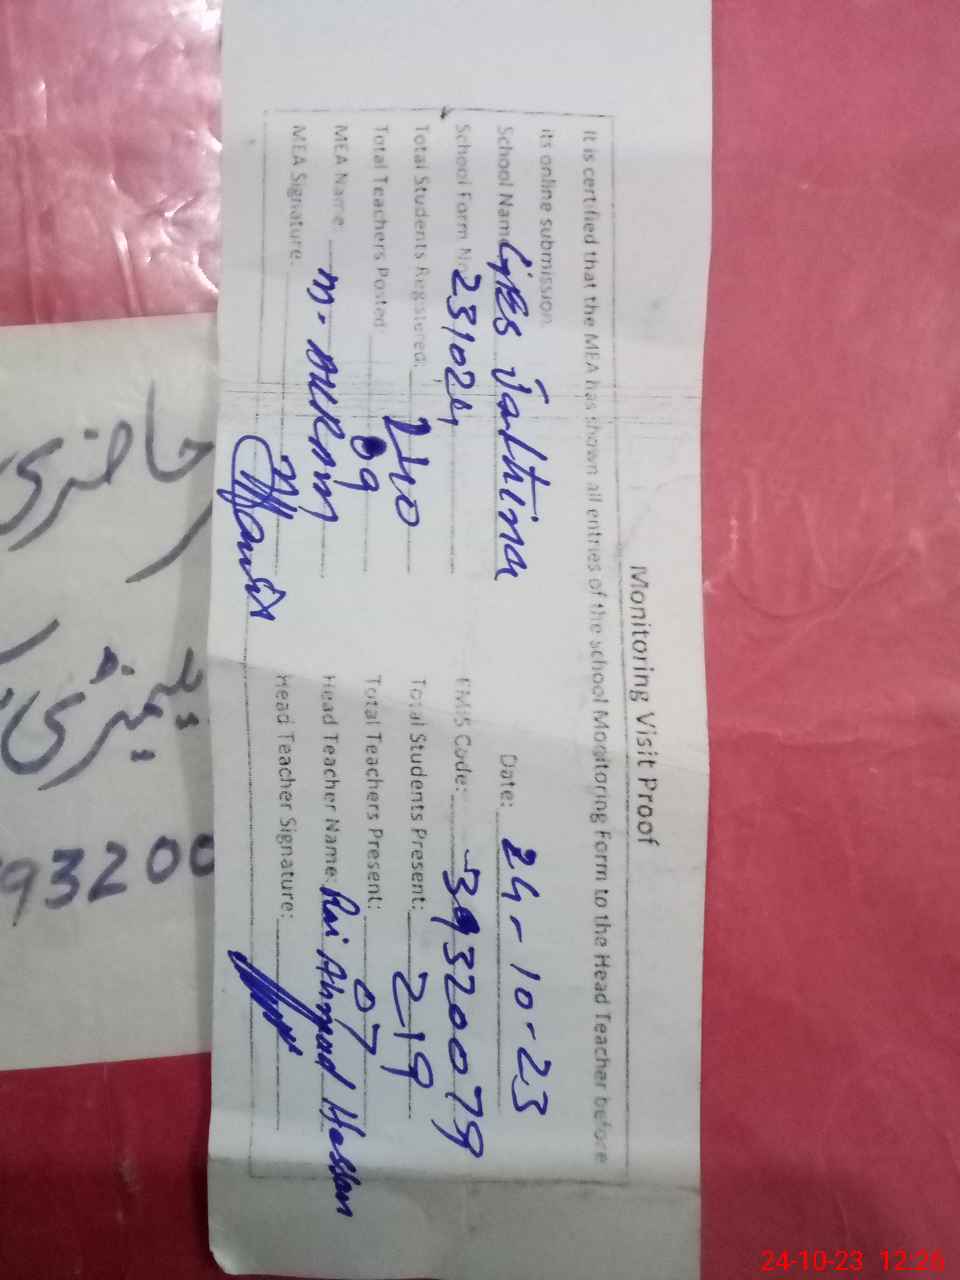 Monitoring Visit Proof
It is certified that the MEA has shown all entries of the school Monitoring Form to the Head Teacher before
its online submission.
School Name GPES Jakhina Date: 24-10-23
School Form No 231024 EMIS Code: 39320079
Total Students Registered: 240 Total Students Present: 219
Total Teachers Posted: 09 Total Teachers Present: 07
MEA Name: M. AKRAM Head Teacher Name: Rai Ahmad Hassan
MEA Signature: Head Teacher Signature:
حاضری
93200
24-10-23 12:26